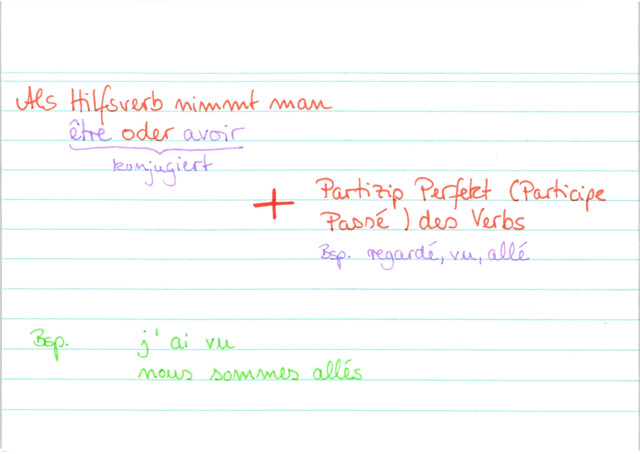 Als Hilfsverb nimmt man
être oder avoir
konjugiert
+ Partizip Perfekt (Participe
Passé) des Verbs
Bsp. regardé, vu, allé
Bsp. j'ai vu
nous sommes allés